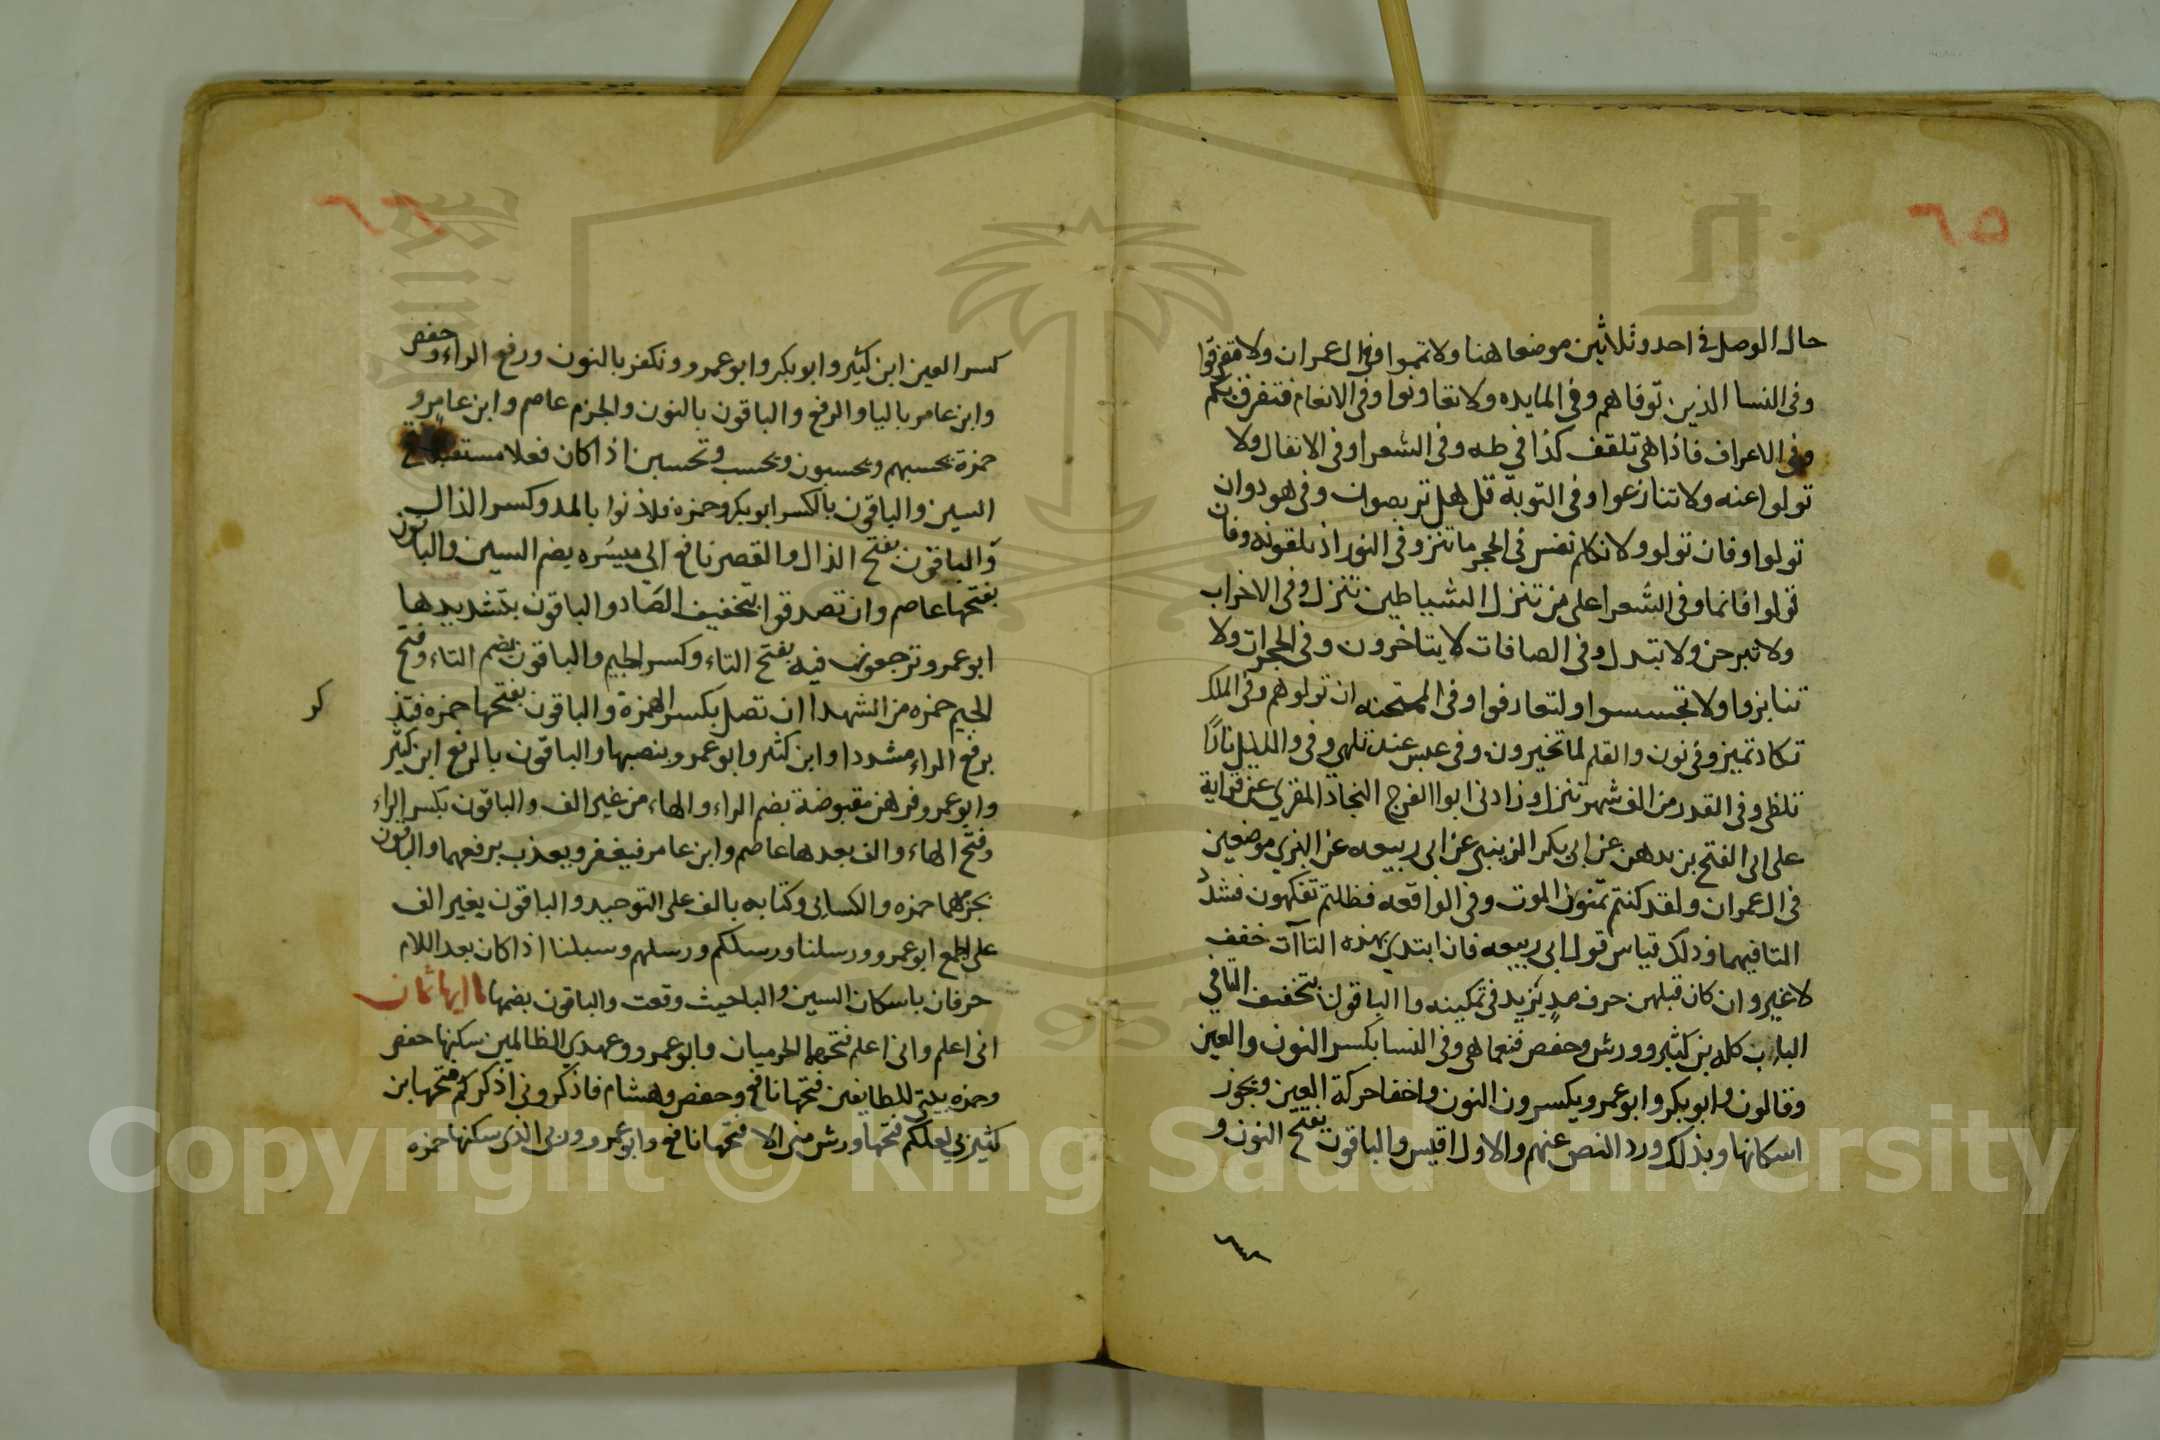 ٦٥
حال الوصل في احد وثلاثين موضعا هنا ولا تيمموا وفي ال عمران ولا تفرقوا
وفي النسا الذين توفاهم وفي المايده ولا تعاونوا وفي الانعام فتفرق بكم
وفي الاعراف فاذا هي تلقف كذا في طه وفي الشعرا وفي الانفال ولا
تولوا عنه ولا تنازعوا وفي التوبة قل هل تربصون وفي هود وان
تولوا وفان تولوا ولا تكلم نفس في الحجر ما تنزل وفي النور اذ تلقونه وفان
تولوا فانما وفي الشعرا على من تنزل الشياطين تنزل وفي الاحزاب
ولا تبرجن ولا تبدل وفي الصافات لا يتاخرون وفي الحجرات ولا
تنابزوا ولا تجسسوا ولتعارفوا وفي الممتحنه ان تولوهم وفي الملك
تكاد تميز وفي نون والقلم لما تخيرون وفي عبس عنه تلهي وفي والليل نارًا
تلظي وفي القدر من الف شهر تنزل وزادني ابوا الفرج النجاد المقري عن قراية
على ابي الفتح بن بدهن عن ابي بكر الزينبي عن ابي ربيعه عن البزي موضعين
في ال عمران ولقد كنتم تمنون الموت وفي الواقعه فظلتم تفكهون فشدد
التا فيهما وذلك قياس قول ابي ربيعه فان ابتدي بهذه التاآت خفف
لا غير وان كان قبلهن حرف مدٍ يزيد في تمكينه واالباقون بتخفيف التا في
الباب كله بن كثير وورش وحفص فنعما هي وفي النسا بكسر النون والعين
وقالون وابو بكر وابو عمرو يكسرون النون واخفا حركة العين ويجوز
اسكانها وبذلك ورد النص عنهم والاول اقيس والباقون بفتح النون و
٦٦
كسر العين ابن كثير وابو بكر وابو عمرو ونكفر بالنون ورفع الراء وحفص
وابن عامر باليا والرفع والباقون بالنون والجزم عاصم وابن عامر و
حمزة يحسبهم ويحسبون ويحسب وتحسبن اذا كان فعلا
السين والباقون بالكسر ابو بكر وحمزه فاذنوا بالمد وكسر الذال
والباقون بفتح الذال والقصر نافع الي ميسُره بضم السين والباقون
بفتحها عاصم وان تصدقوا بتخفيف الصَاد والباقون بتشديدها
ابو عمرو ترجعون فيه بفتح التاء وكسر الجيم والباقون بضم التاء وفتح
الجيم حمزه من الشهداا ان تضل بكسر الهمزة والباقون بفتحها حمزه فتذ
كر
برفع الراء مشددا وابن كثير وابو عمرو بنصبها والباقون بالرفع ابن كثير
وابو عمرو فرهن مقبوضة بضم الراء والهاء من غير الف والباقون بكسر الراء
وفتح الهاء والف بعدها عاصم وابن عامر فيغفر ويعذب برفعهما والباقون
بجزمهما حمزه والكساىي وكتابه بالف على التوحيد والباقون بغير الف
على الجمع ابو عمرو ورسلنا ورسلكم ورسلهم وسبلنا اذا كان بعد اللام
حرفان باسكان السين والبا حيث وقعت والباقون بضمها يااتها ثمان
اني اعلم واني اعلم فتحهما الحرميان وابو عمرو وعهدي الظالمين سكنها حفص
وحمزه بيتي للطايفين فتحها نافع وحفص وهشام فاذكروني اذكركم فتحها ابن
كثير بي لعلكم فتحها ورش مني الا فتحها نافع وابو عمرو وربي الذي سكنها حمزه
Copyright © King Saud University